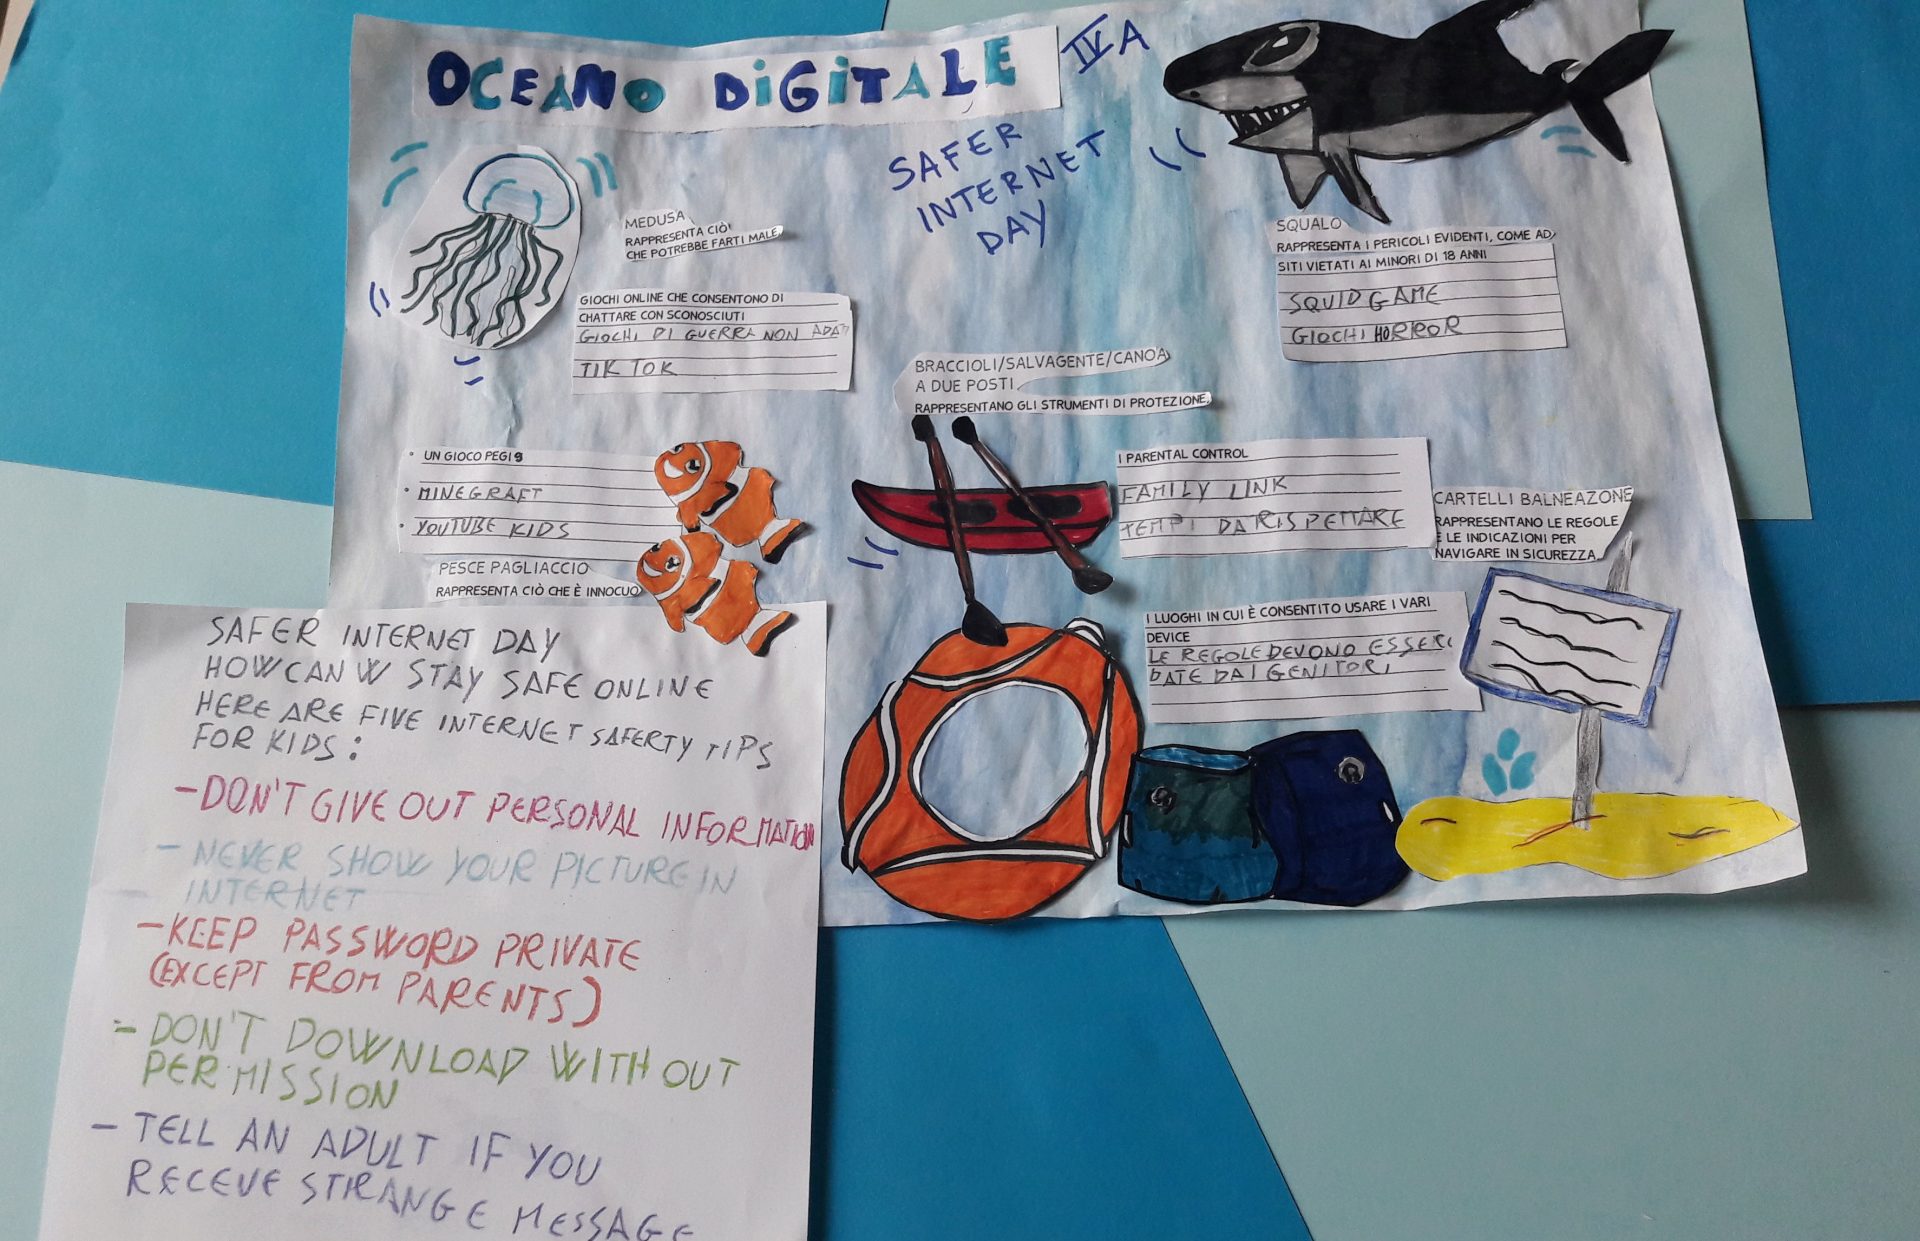 OCEANO DIGITALE IVA
SAFER
INTERNET
DAY
MEDUSA
RAPPRESENTA CIÒ
CHE POTREBBE FARTI MALE.
GIOCHI ONLINE CHE CONSENTONO DI
CHATTARE CON SCONOSCIUTI
GIOCHI DI GUERRA NON ADAT
TIK TOK
SQUALO
RAPPRESENTA I PERICOLI EVIDENTI, COME AD
SITI VIETATI AI MINORI DI 18 ANNI
SQUID GAME
GIOCHI HORROR
BRACCIOLI/SALVAGENTE/CANOA
A DUE POSTI
RAPPRESENTANO GLI STRUMENTI DI PROTEZIONE.
UN GIOCO PEGI 9
MINEGRAFT
YOUTUBE KIDS
PESCE PAGLIACCIO
RAPPRESENTA CIÒ CHE È INNOCUO
I PARENTAL CONTROL
FAMILY LINK
TEMPI DA RISPETTARE
CARTELLI BALNEAZONE
RAPPRESENTANO LE REGOLE
E LE INDICAZIONI PER
NAVIGARE IN SICUREZZA.
I LUOGHI IN CUI È CONSENTITO USARE I VARI
DEVICE
LE REGOLE DEVONO ESSERE
DATE DAI GENITORI
SAFER INTERNET DAY
HOW CAN W STAY SAFE ONLINE
HERE ARE FIVE INTERNET SAFERTY TIPS
FOR KIDS:
- DON'T GIVE OUT PERSONAL INFORMATION
- NEVER SHOW YOUR PICTURE IN
INTERNET
- KEEP PASSWORD PRIVATE
(EXCEPT FROM PARENTS)
- DON'T DOWNLOAD WITHOUT
PERMISSION
- TELL AN ADULT IF YOU
RECEVE STRANGE MESSAGE